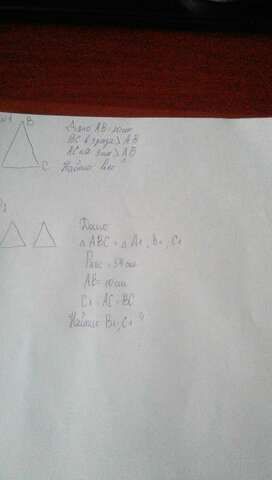 №1
B
C
Дано AB=10см
BC в 3 раза > AB
AC на 3см > AB
Найти
Дано
△ ABC = △ A1, B1, C1
Pавс = 34см
AB=10см
C1 = AC = BC
Найти B1, C1 ?